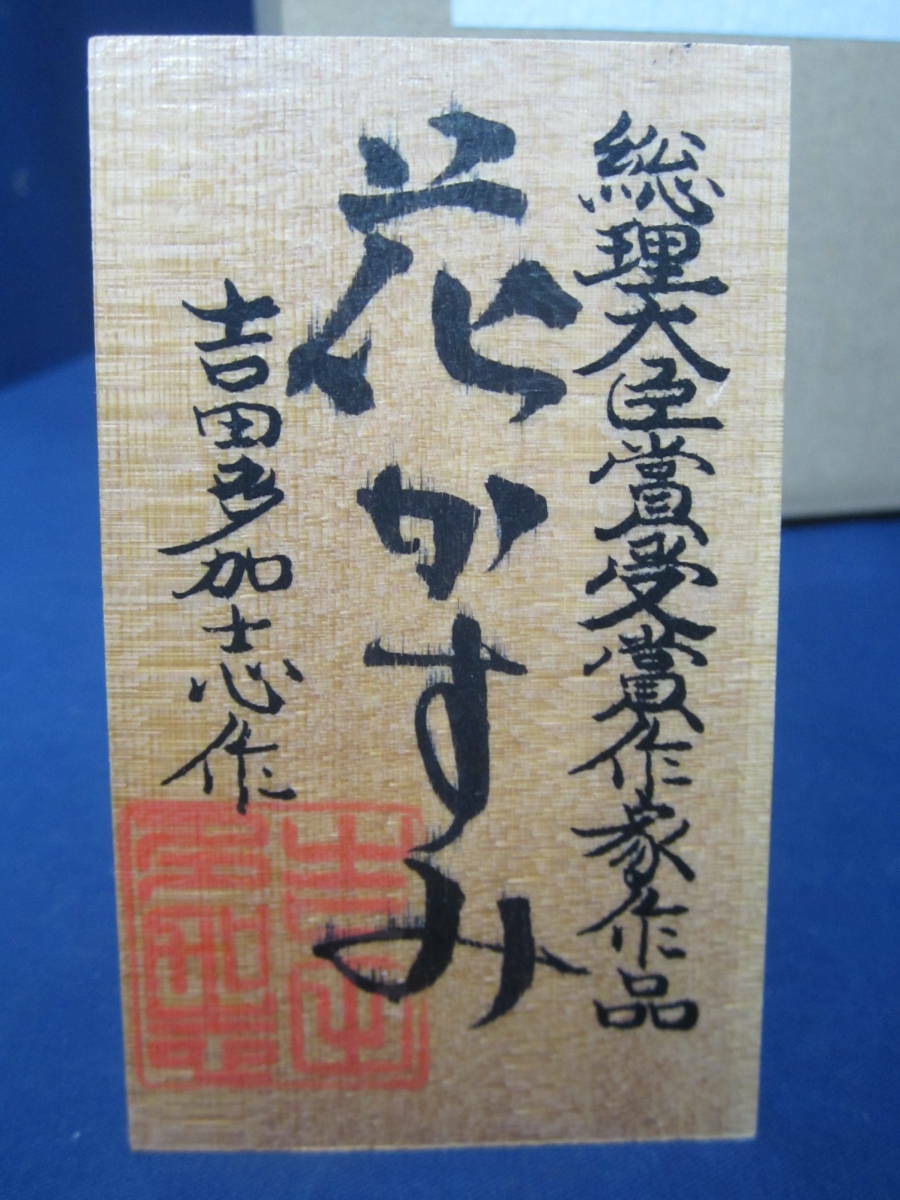 総理大臣賞受賞作家作品
花かすみ
吉田多加士志作